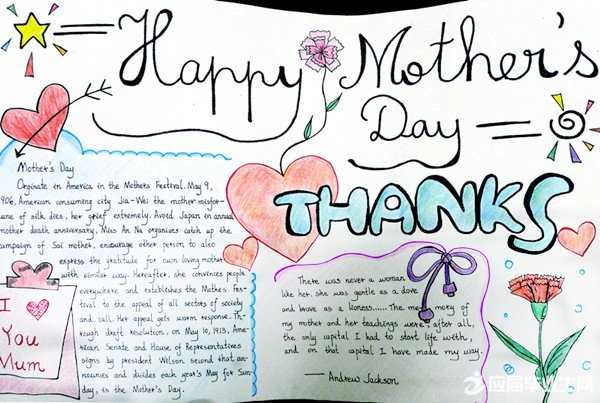 Happy Mother's
Day
THANKS
Mother's Day
Orginate in America in the Mothers Festival. May 9,
906, American consuming city Jia-Wei the mother misfor-
tune of silk dies, her grief extremely. Avoid Japan in annual
mother death anniversary, Miss An Na organizes catch up the
ampaign of Sai mother, encourage other person to also
express the gratitude for own loving mother
with similar way. Hereafter, she convinces people
everywhere and establishes the Mothers Fes-
tival to the appeal of all sectors of society
and call. Her appeal gets worm response. Th-
rough draft resolution, on May 10, 1913, Ame-
rican Senate and House of Representatives
signs by president Welson second that an-
nounces and divides each year's May for Sun-
day, is the Mother's Day.
I
You
Mum
There was never a woman
like her. she was gentle as a dove
and brave as a lioness...... The memory of
my mother and her teachings were, after all,
the only capital I had to start life with,
and on that capital I have made my way.
—— Andrew Jackson
应届毕业生网